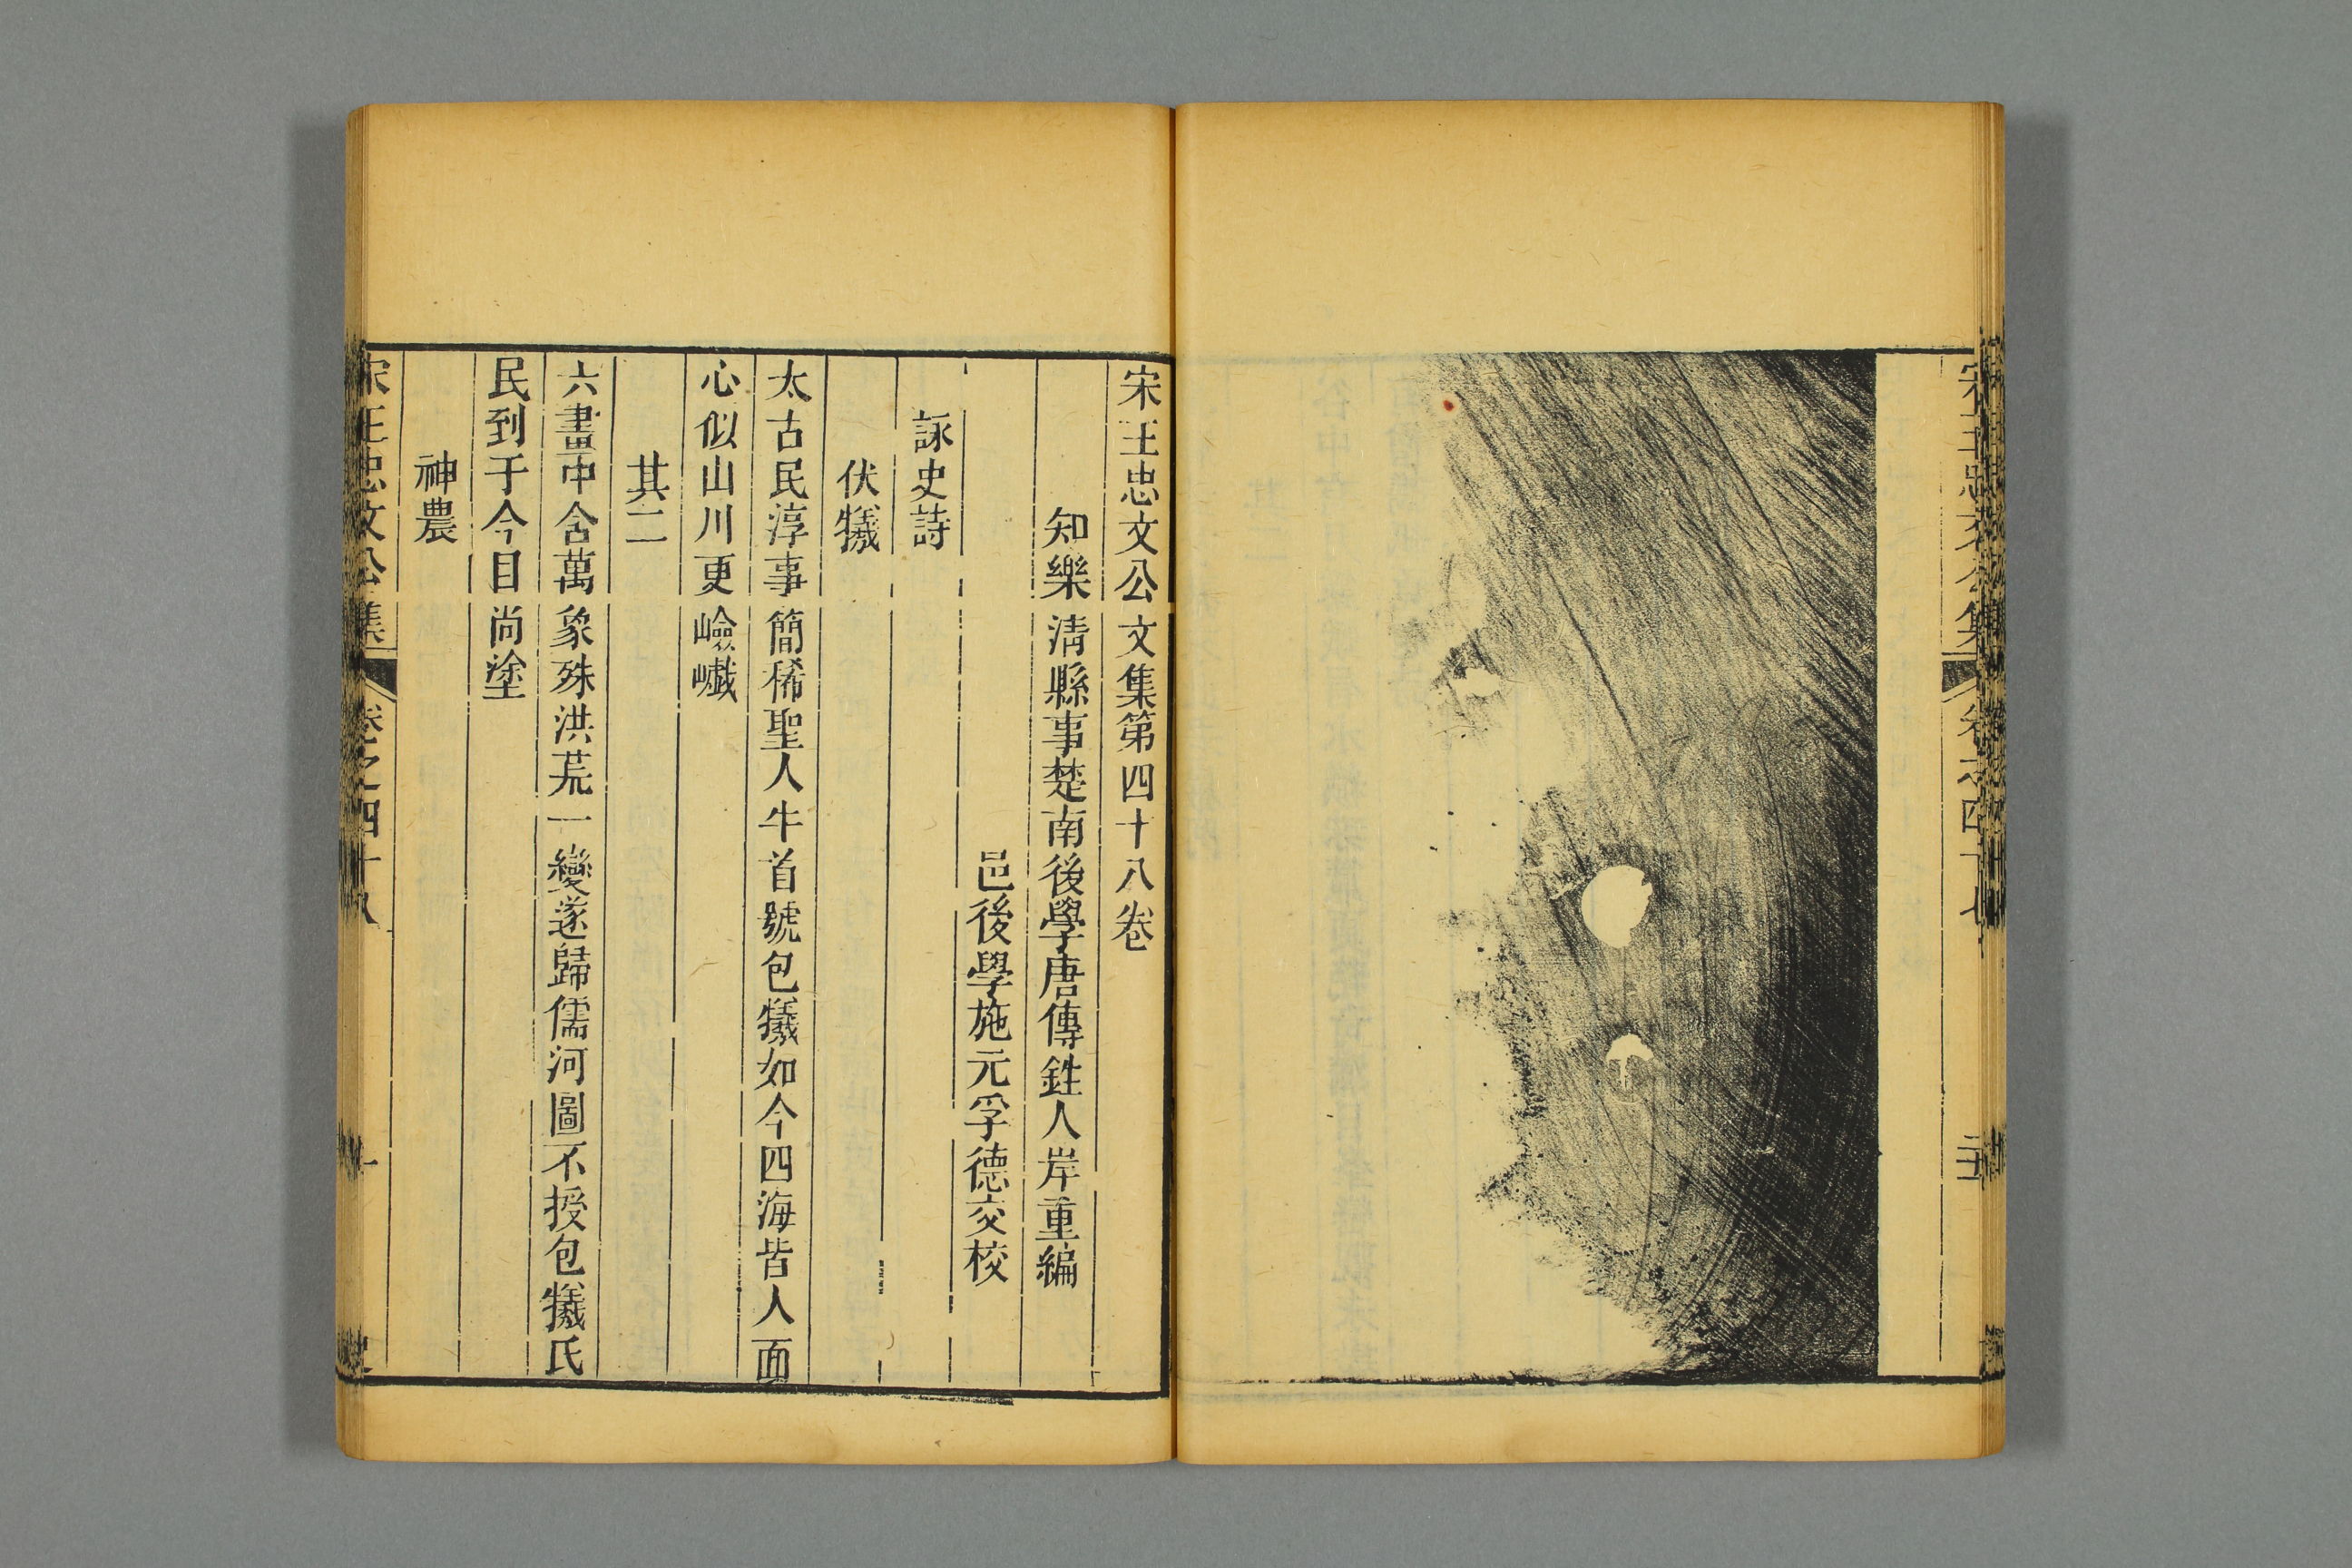 宋王忠文公集
卷之四十七
宋王忠文公文集第四十八卷
知樂清縣事楚南後學唐傳鉎人岸重編
邑後學施元孚德交校
詠史詩
伏犧
太古民淳事簡稀聖人牛首號包犧如今四海皆人面
心似山川更嶮巇
其二
六畫中含萬象殊洪荒一變遂歸儒河圖不授包犧氏
民到于今目尚塗
神農
宋王忠文公集
卷之四十八
一